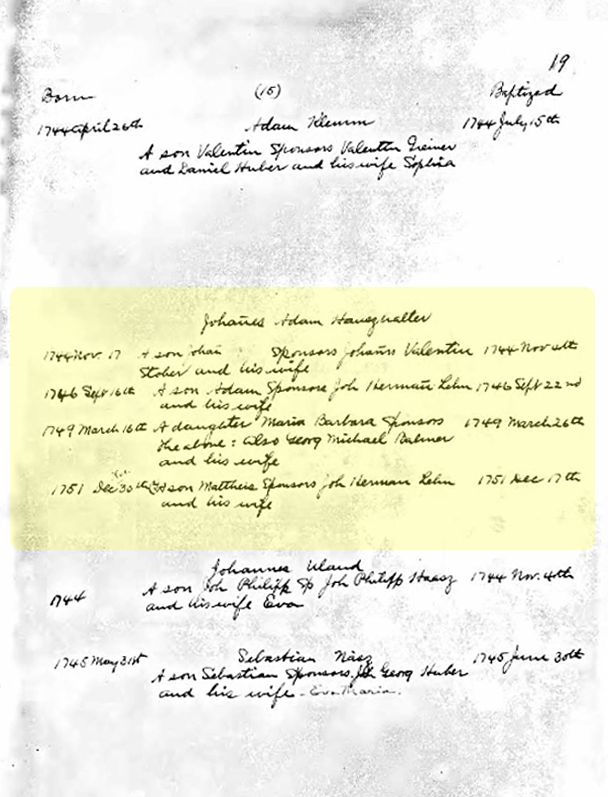 19
Born (15) Baptized
1744 April 26th Adam Klemm 1744 July 15th
A son Valentin Sponsors Valentin Greiner
and Daniel Huber and his wife Sophia
Johañes Adam Hauszhalter
1744 Nov. 17 A son Johan Sponsors Johañs Valentin 1744 Nov 4th
Stober and his wife
1746 Sept 16th A son Adam Sponsors Joh Herman Lehn 1746 Sept 22nd
and his wife
1749 March 16th A daughter Maria Barbara Sponsors 1749 March 26th
the above: also Georg Michael Balmer
and his wife
1751 Dec A son Mattheis Sponsors Joh Herman Lehn 1751 Dec 17th
and his wife
Johannes Uland
1744 A son Joh Philipp Sp Joh Philipp Haasz 1744 Nov. 4th
and his wife Eva
1745 May 31st Sebastian Näsz 1745 June 30th
A son Sebastian Sponsors Joh Georg Huber
and his wife - Eva Maria.